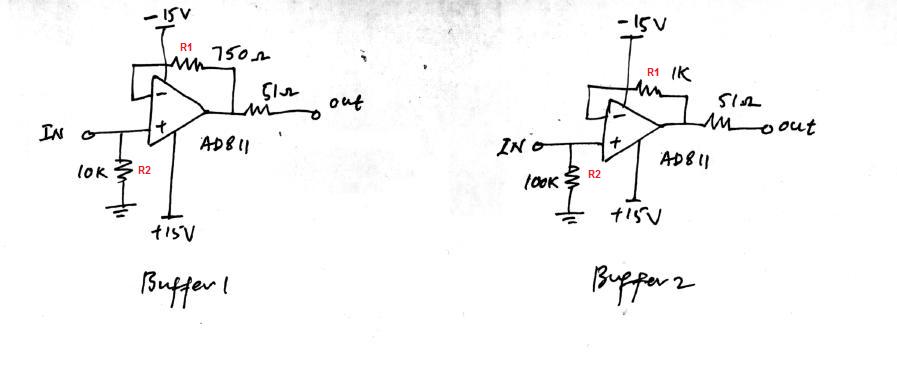 -15V
R1 750Ω
-
51Ω
out
IN
+
AD811
10K R2
+15V
Buffer1
-15V
R1 1K
-
51Ω
out
IN
+
AD811
100K R2
+15V
Buffer2